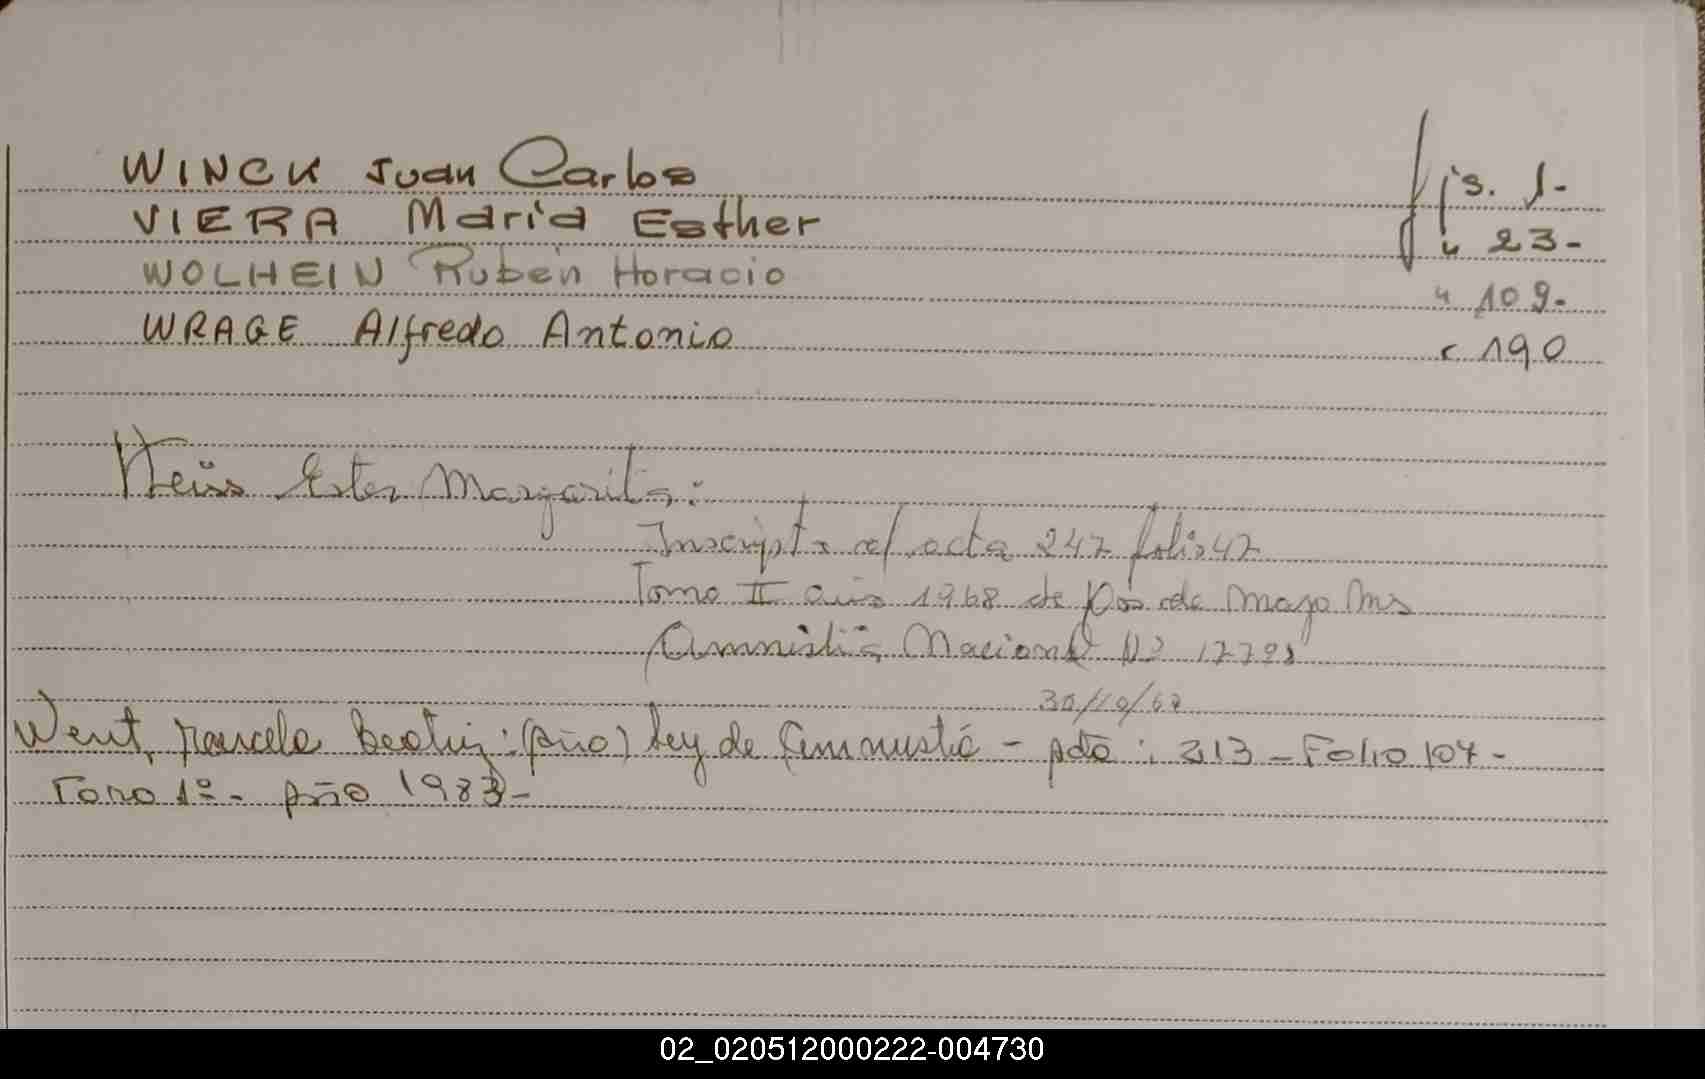 WINCK Juan Carlos fjs. 1-
VIERA Maria Esther " 23-
WOLHEIN Ruben Horacio " 109-
WRAGE Alfredo Antonio " 190
Weiss Ester Margarita:
Inscripta s/ acta 247 folio 47
Tomo II año 1968 de de Mayo Ms
Amnistia Nacional Nº
30/10/67
Went, Marcela Beatriz: (año) Ley de Amnistía - Acta: 313 - Folio 104 -
Tomo 1º - Año 1983 -
02_020512000222-004730